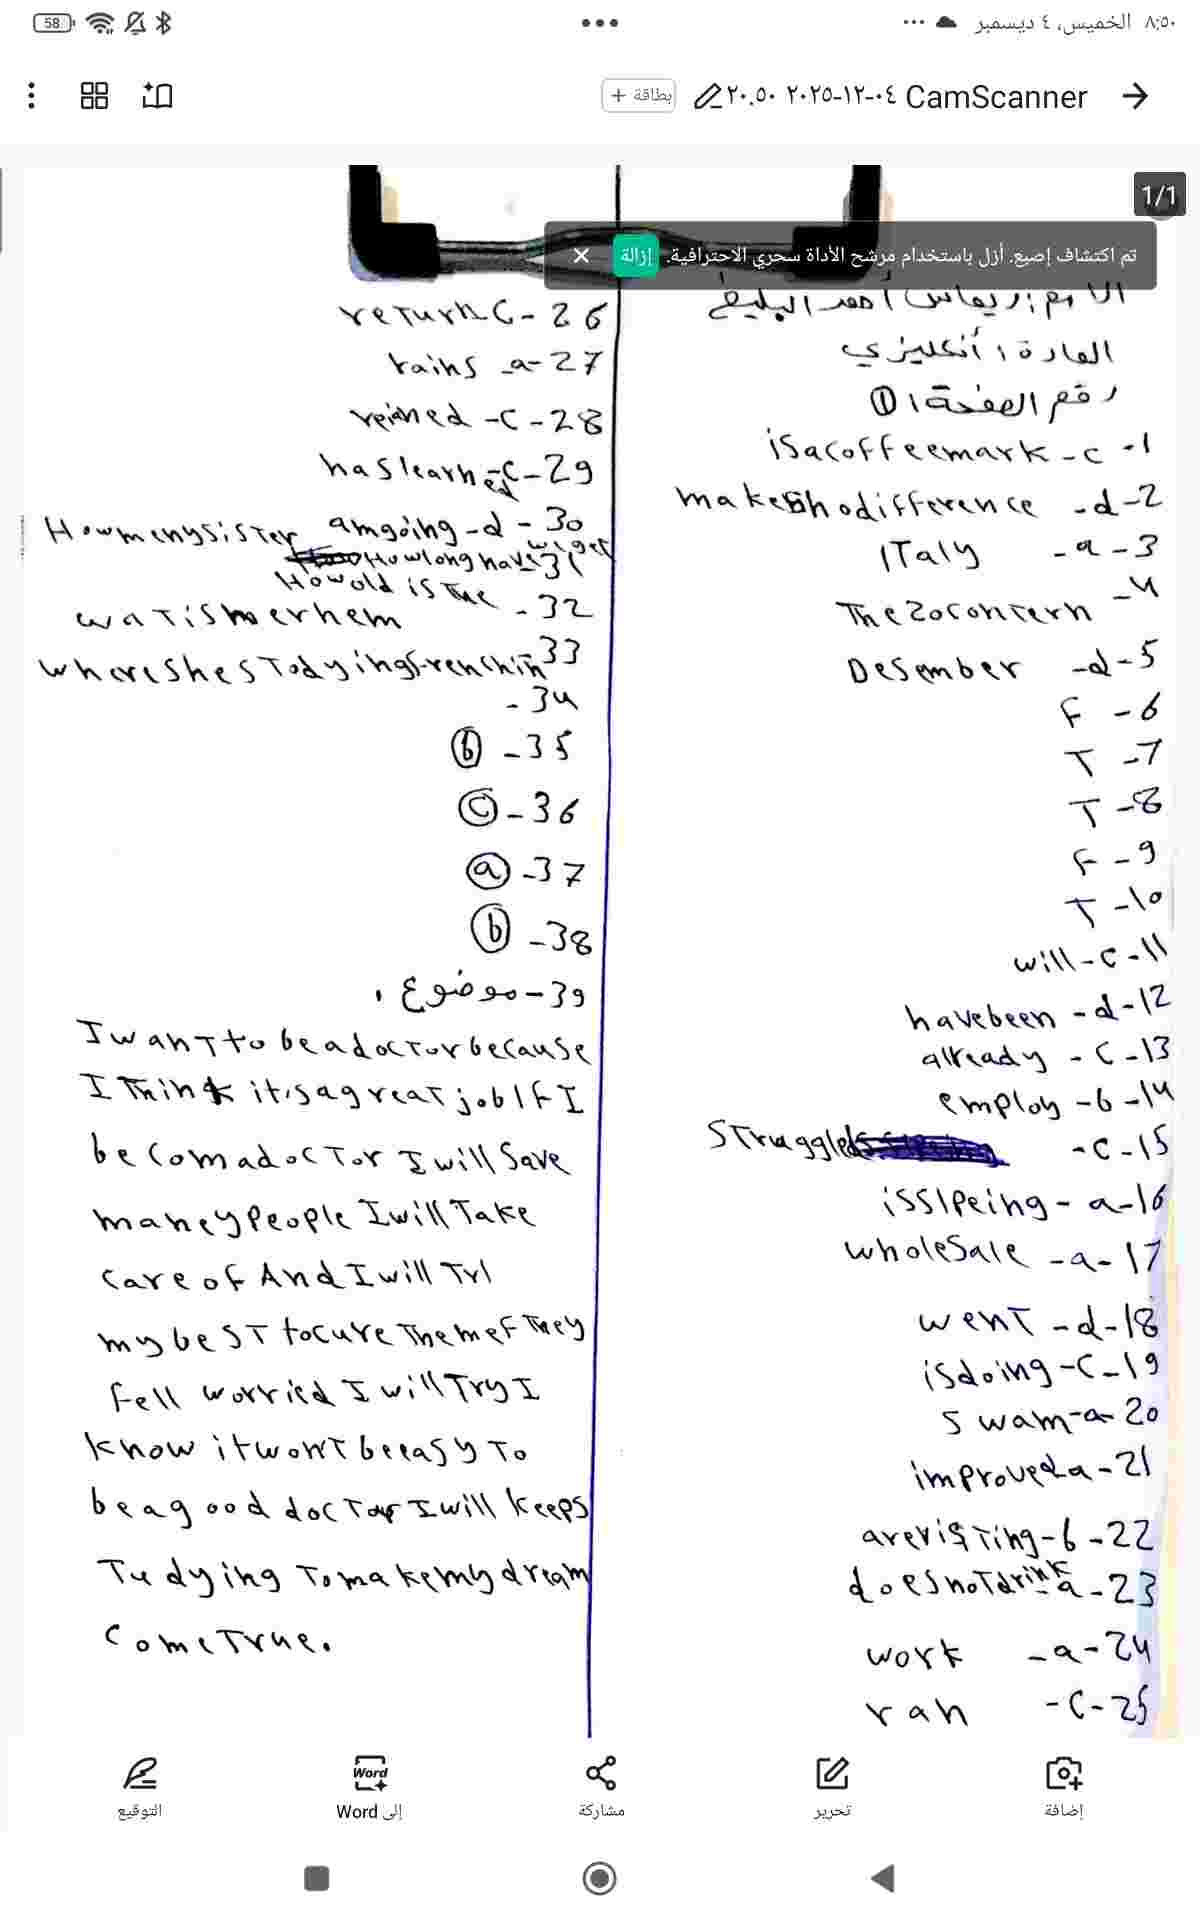 ٨:٥٠ الخميس، ٤ ديسمبر
58
CamScanner ٠٤-١٢-٢٠٢٥ ٢٠.٥٠
بطاقة +
1/1
تم اكتشاف إصبع. أزل باستخدام مرشح الأداة سحري الاحترافية. إزالة
الاسم: ريماس أحمد البليخ
المادة: أنكليزي
رقم الصفحة: ①
1- c - isacoffeemark
2-d- makeshodifference
3-a- ITaly
4- The20conTern
5-d- Desember
6- F
7- T
8- T
9- F
10- T
11-c-will
12-d- havebeen
13-c- already
14-b- employ
15-c- STruggled
16-a- isslpeing
17-a- wholesale
18-d- wenT
19-c- isdoing
20-a- swam
21-a improved
22-b-arevisTing
23-a- doesnoTdrink
24-a- work
25-c- ran
26-c return
27-a- rains
28-c- reined
29-c- haslearned
30-d- amgoing
Howmenysister wiget
31- Howlonghave
Howold is The
32- waTismerhem
33 whereshesTodyingfrenchin
34-
35- ⓑ
36- ⓒ
37- ⓐ
38- ⓑ
39-موضوع:
IwanTto beadocTorbecause
I Think it,sagreaTjobIf I
be comadocTor Iwill Save
maneyPeople Iwill Take
care of And Iwill TrI
mybesT tocure Themef They
fell worried I willTry I
know itwonTbeeasy To
beagood docTor Iwill keeps
Tudying Tomakemydream
comeTrue.
التوقيع
إلى Word
مشاركة
تحرير
إضافة